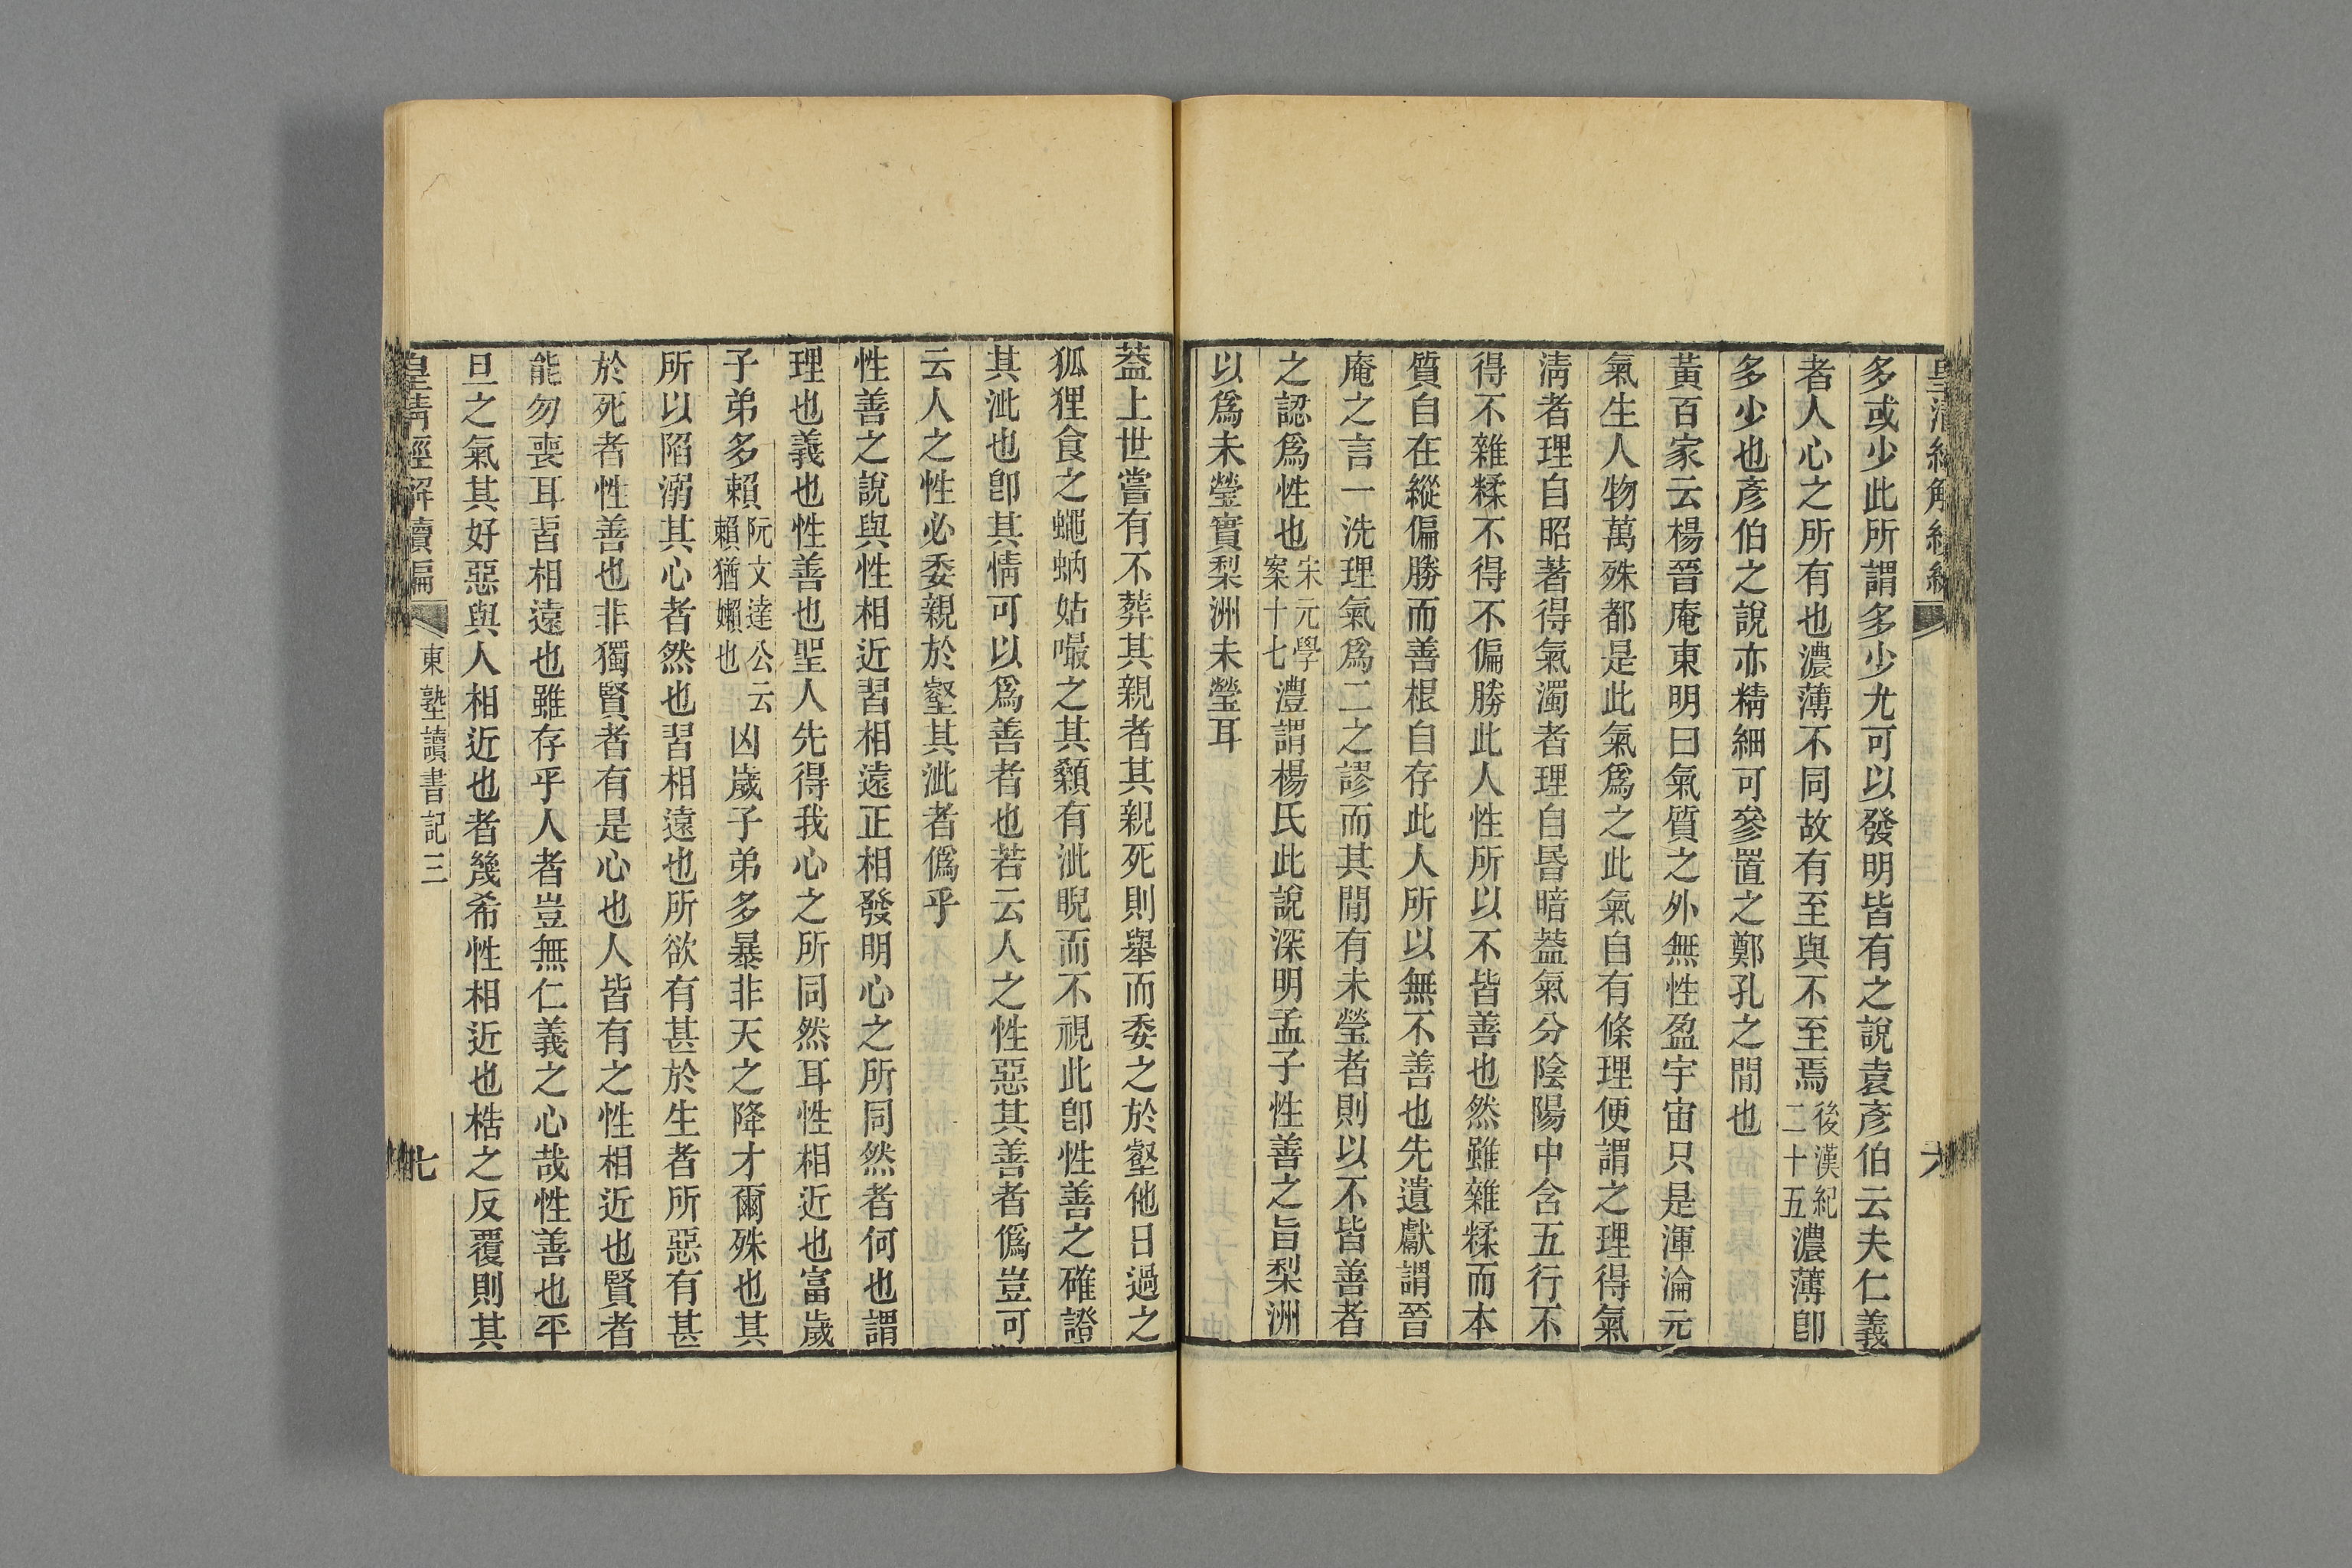 多或少此所謂多少尤可以發明皆有之說袁彥伯云夫仁義
者人心之所有也濃薄不同故有至與不至焉後漢紀二十五濃薄卽
多少也彥伯之說亦精細可參置之鄭孔之閒也
黃百家云楊晉庵東明曰氣質之外無性盈宇宙只是渾淪元
氣生人物萬殊都是此氣爲之此氣自有條理便謂之理得氣
淸者理自昭著得氣濁者理自昏暗葢氣分陰陽中含五行不
得不雜糅不得不偏勝此人性所以不皆善也然雖雜糅而本
質自在縱偏勝而善根自存此人所以無不善也先遺獻謂晉
庵之言一洗理氣爲二之謬而其閒有未瑩者則以不皆善者
之認爲性也宋元學案十七澧謂楊氏此說深明孟子性善之旨梨洲
以爲未瑩實梨洲未瑩耳
葢上世嘗有不葬其親者其親死則舉而委之於壑他日過之
狐狸食之蠅蚋姑嘬之其顙有泚睨而不視此卽性善之確證
其泚也卽其情可以爲善者也若云人之性惡其善者僞豈可
云人之性必委親於壑其泚者僞乎
性善之說與性相近習相遠正相發明心之所同然者何也謂
理也義也性善也聖人先得我心之所同然耳性相近也富歲
子弟多賴阮文達公云賴猶嬾也凶歲子弟多暴非天之降才爾殊也其
所以陷溺其心者然也習相遠也所欲有甚於生者所惡有甚
於死者性善也非獨賢者有是心也人皆有之性相近也賢者
能勿喪耳習相遠也雖存乎人者豈無仁義之心哉性善也平
旦之氣其好惡與人相近也者幾希性相近也梏之反覆則其
皇淸經解續編
東塾讀書記三
七